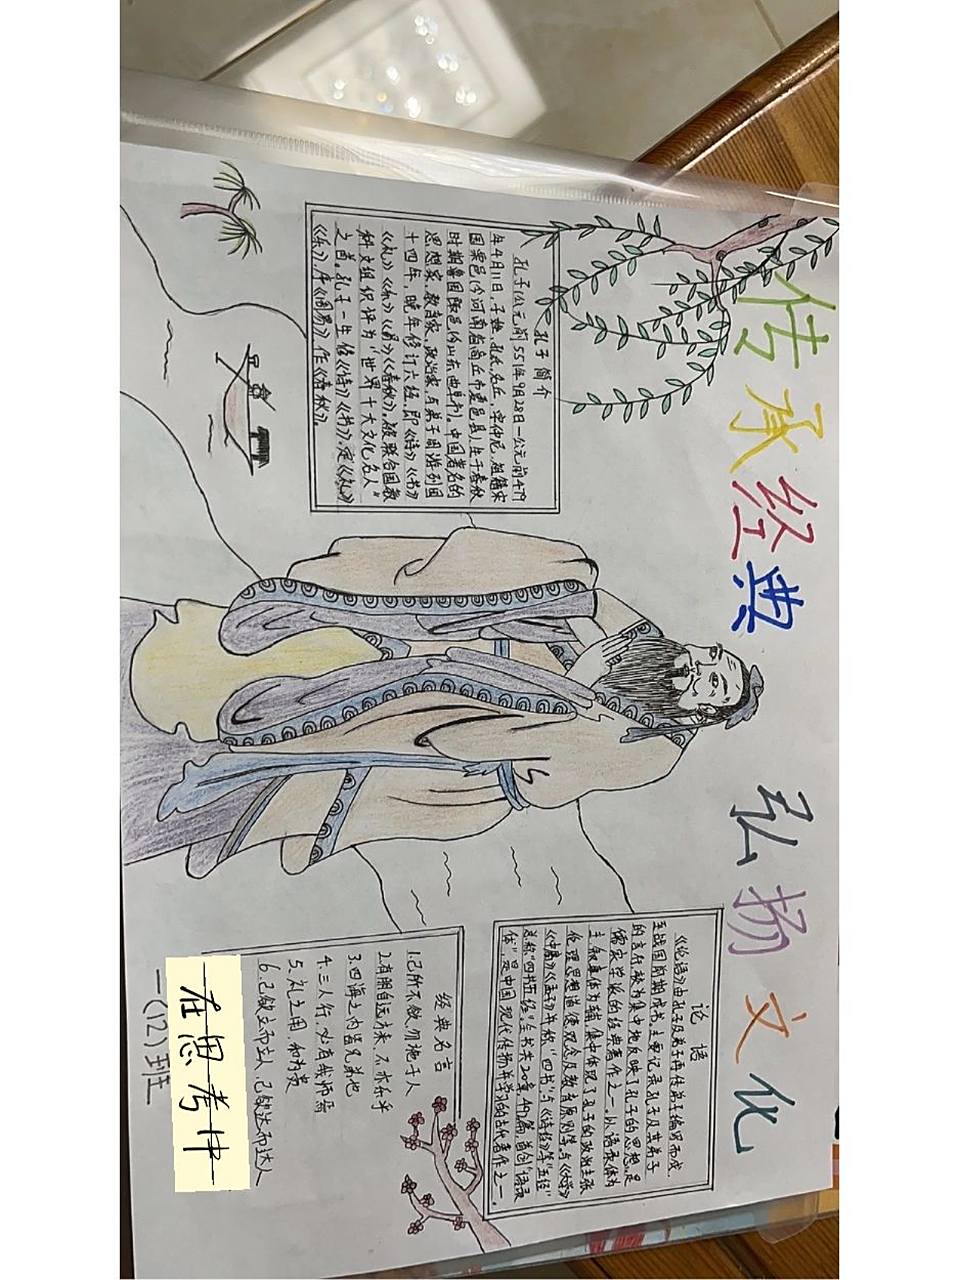 传承经典 弘扬文化
孔子简介
孔子(公元前551年9月28日—公元前479
年4月11日,子姓,孔氏,名丘,字仲尼,祖籍宋
国栗邑(今河南省商丘市夏邑县),生于春秋
时期鲁国陬邑(今山东曲阜市)。中国著名的
思想家、教育家、政治家,与弟子周游列国
十四年,晚年修订六经,即《诗》《书》
《礼》《乐》《易》《春秋》。被联合国教
科文组织评为“世界十大文化名人”
之首。孔子一生修《诗》《书》,定《礼》
《乐》,序《周易》,作《春秋》。
论语
《论语》由孔子及弟子再传弟子编写而成,
至战国前期成书,主要记录孔子及其弟子
的言行,较为集中地反映了孔子的思想,是
儒家学派的经典著作之一。以语录体为
主,叙事体为辅,集中体现了孔子的政治主张
伦理思想道德观念及教育原则等与《大学》
《中庸》《孟子》并称“四书”与《诗经》等“五经”
总称“四书五经”。全书共20篇492篇,首创“语录
体”,是中国现代传扬并学习的古代著作之一。
经典名言
1.己所不欲,勿施于人
2.有朋自远方来,不亦乐乎
3.四海之内皆兄弟也
4.三人行,必有我师焉
5.礼之用,和为贵
6.己欲立而立人 己欲达而达人
在思考中
一(12)班